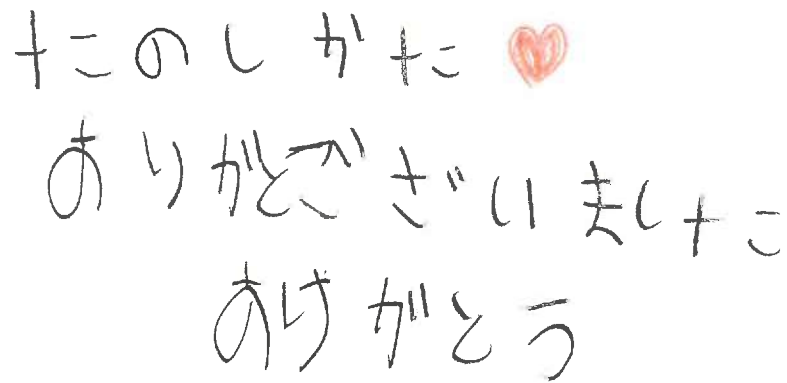 たのしかた
ありがとございました
あけがとう